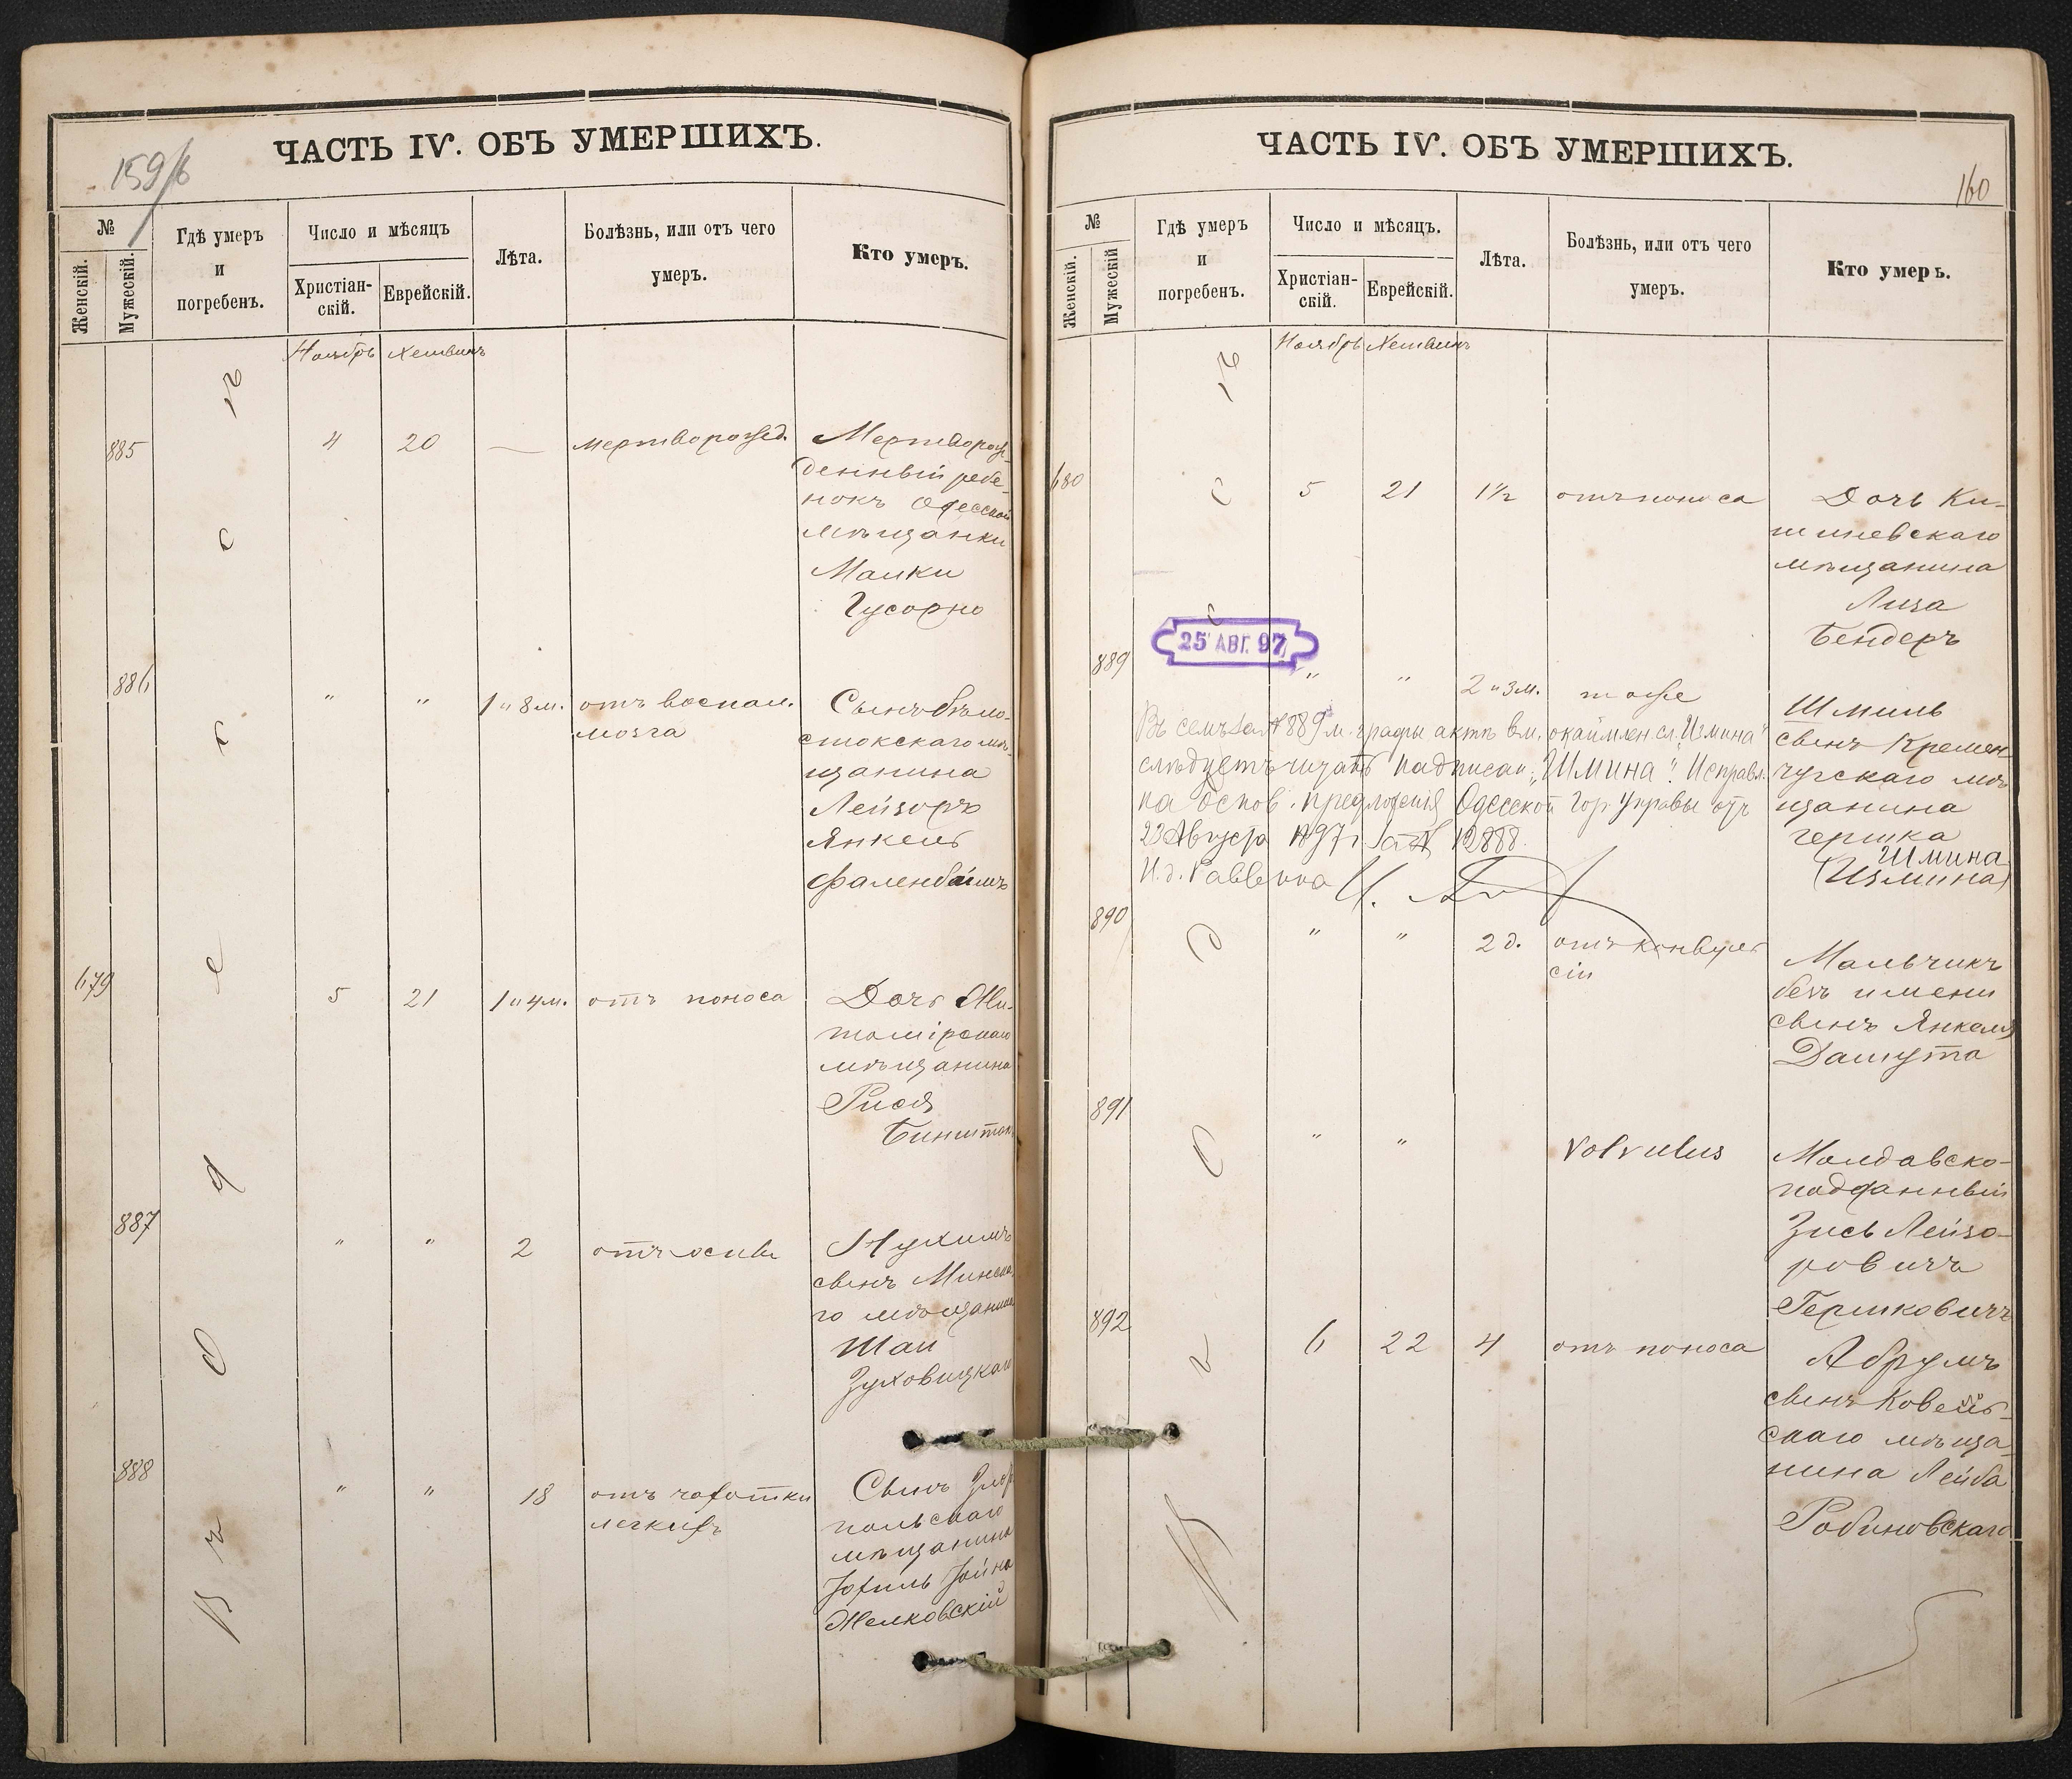 ЧАСТЬ IV. ОБЪ УМЕРШИХЪ.
159/б
№
Женскій.
Мужескій.
Гдѣ умеръ
и
погребенъ.
Число и мѣсяцъ
Христіан-
скій.
Еврейскій.
Лѣта.
Болѣзнь, или отъ чего
умеръ.
Кто умеръ.
Ноябрь Хешвинъ
въ Одессѣ
885 4 20 — мертворожд. Мертворож-
денный ребе-
нокъ Одесской
мѣщанки
Малки
Гусорно
886 " " 1 и 8 м. отъ воспал. Сынъ бѣло-
мозга стокскаго мѣ-
щанина
Лейзоръ
Янкель
679 5 21 1 и 4 м. отъ поноса Дочь Жи-
томірскаго
мѣщанина
Рися
Бинштокъ
887 " " 2 отъ оспы Нухимъ
сынъ Минска-
го мѣщанина
Шаи
Зуховицкаго
888 " " 18 отъ чахотки Сынъ
легкихъ польскаго
мѣщанина
Іохиль Іойна
Желковскій
ЧАСТЬ IV. ОБЪ УМЕРШИХЪ.
160
№
Женскій.
Мужескій
Гдѣ умеръ
и
погребенъ.
Число и мѣсяцъ.
Христіан-
скій.
Еврейскій.
Лѣта.
Болѣзнь, или отъ чего
умеръ.
Кто умеръ.
Ноябрь Хешвинъ
680 5 21 1½ отъ поноса Дочь Ки-
шиневскаго
мѣщанина
Лиза
Бендеръ
25 АВГ. 97
889 " " 2 и 3 м. тоже Шмиль
сынъ Кремен-
чугскаго мѣ-
щанина
Гершка
Шмина
(Измина)
Въ семъ за № 889 м. графы актѣ вм. окаймлен. сл. „Измина“
слѣдуетъ читать надписан. „Шмина“. Исправл.
на основ. предложенія Одесской Гор. Управы отъ
23 Августа 1897 г. за № 12888.
И. д. Раввина
890 " " 2 д. отъ конвуль-
сіи Мальчикъ
безъ имени
сынъ Янкеля
Дашута
891 " " Volvulus Молдавско-
подданный
Зись Лейзо-
ровичъ
Гершковичъ
892 6 22 4 отъ поноса Абрумъ
сынъ Ковель-
скаго мѣща-
нина Лейба
Робиновскаго